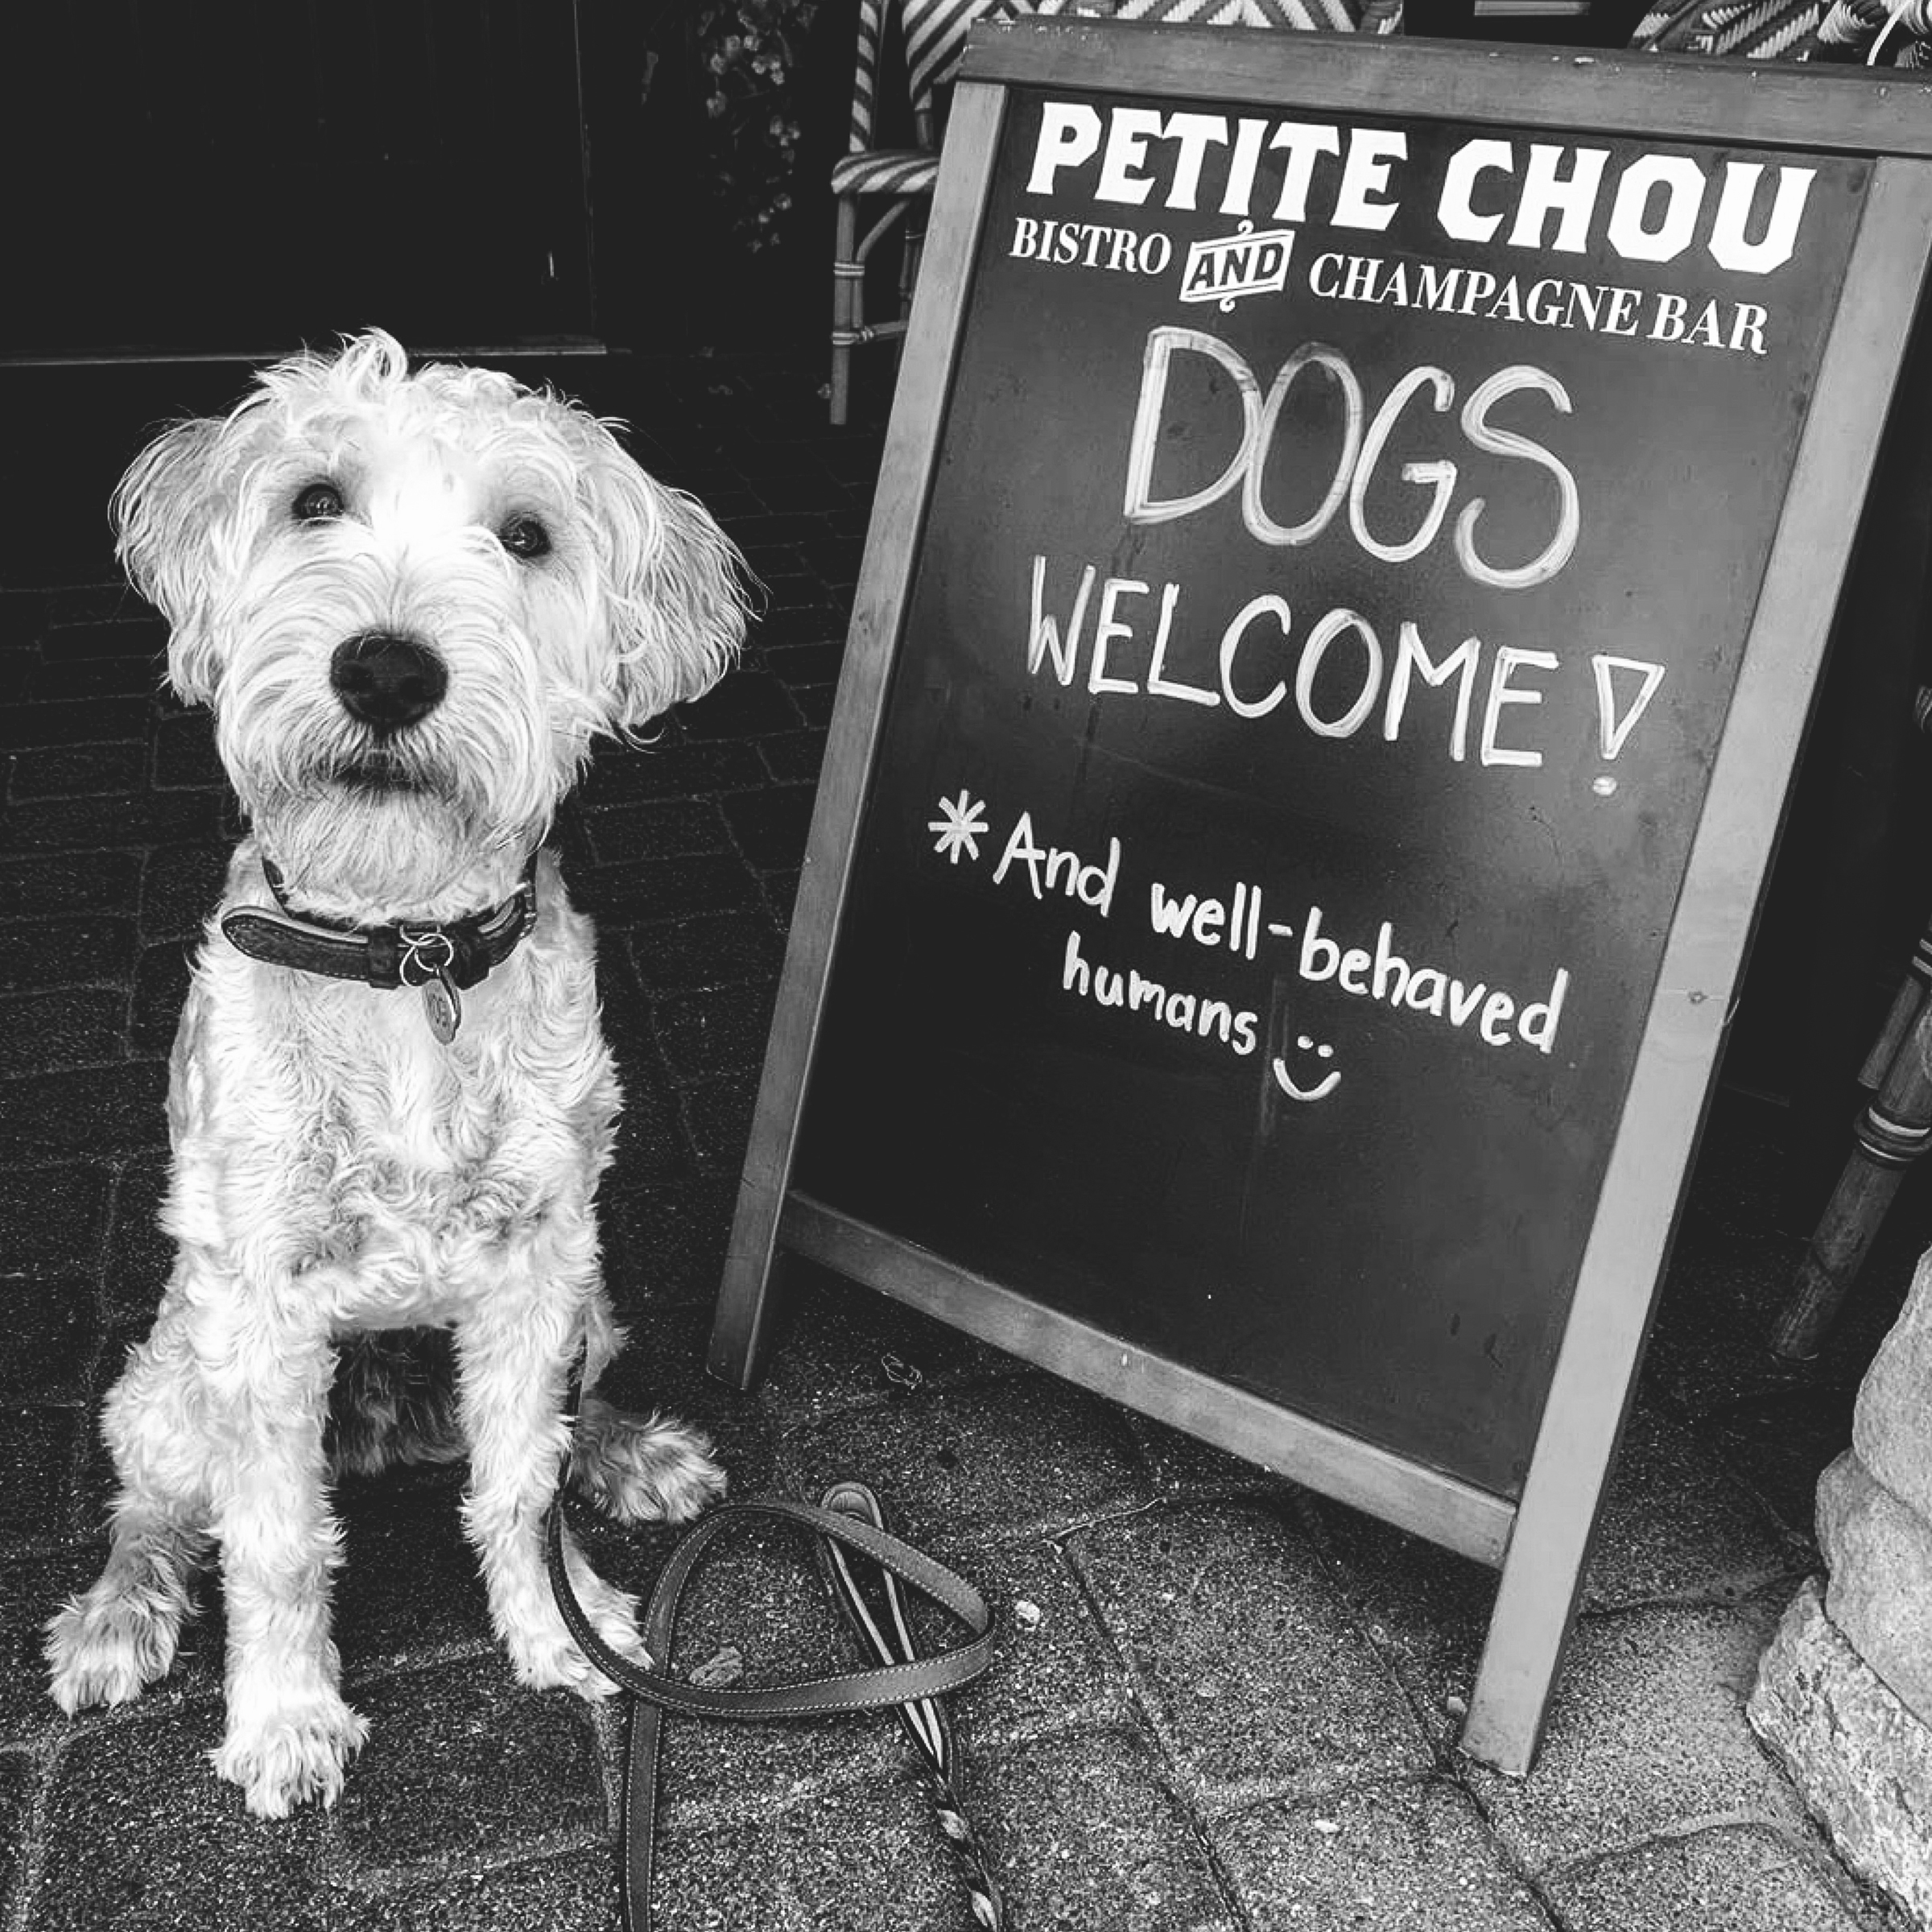 PETITE CHOU
BISTRO AND CHAMPAGNE BAR
DOGS
WELCOME!
*And well-behaved
humans